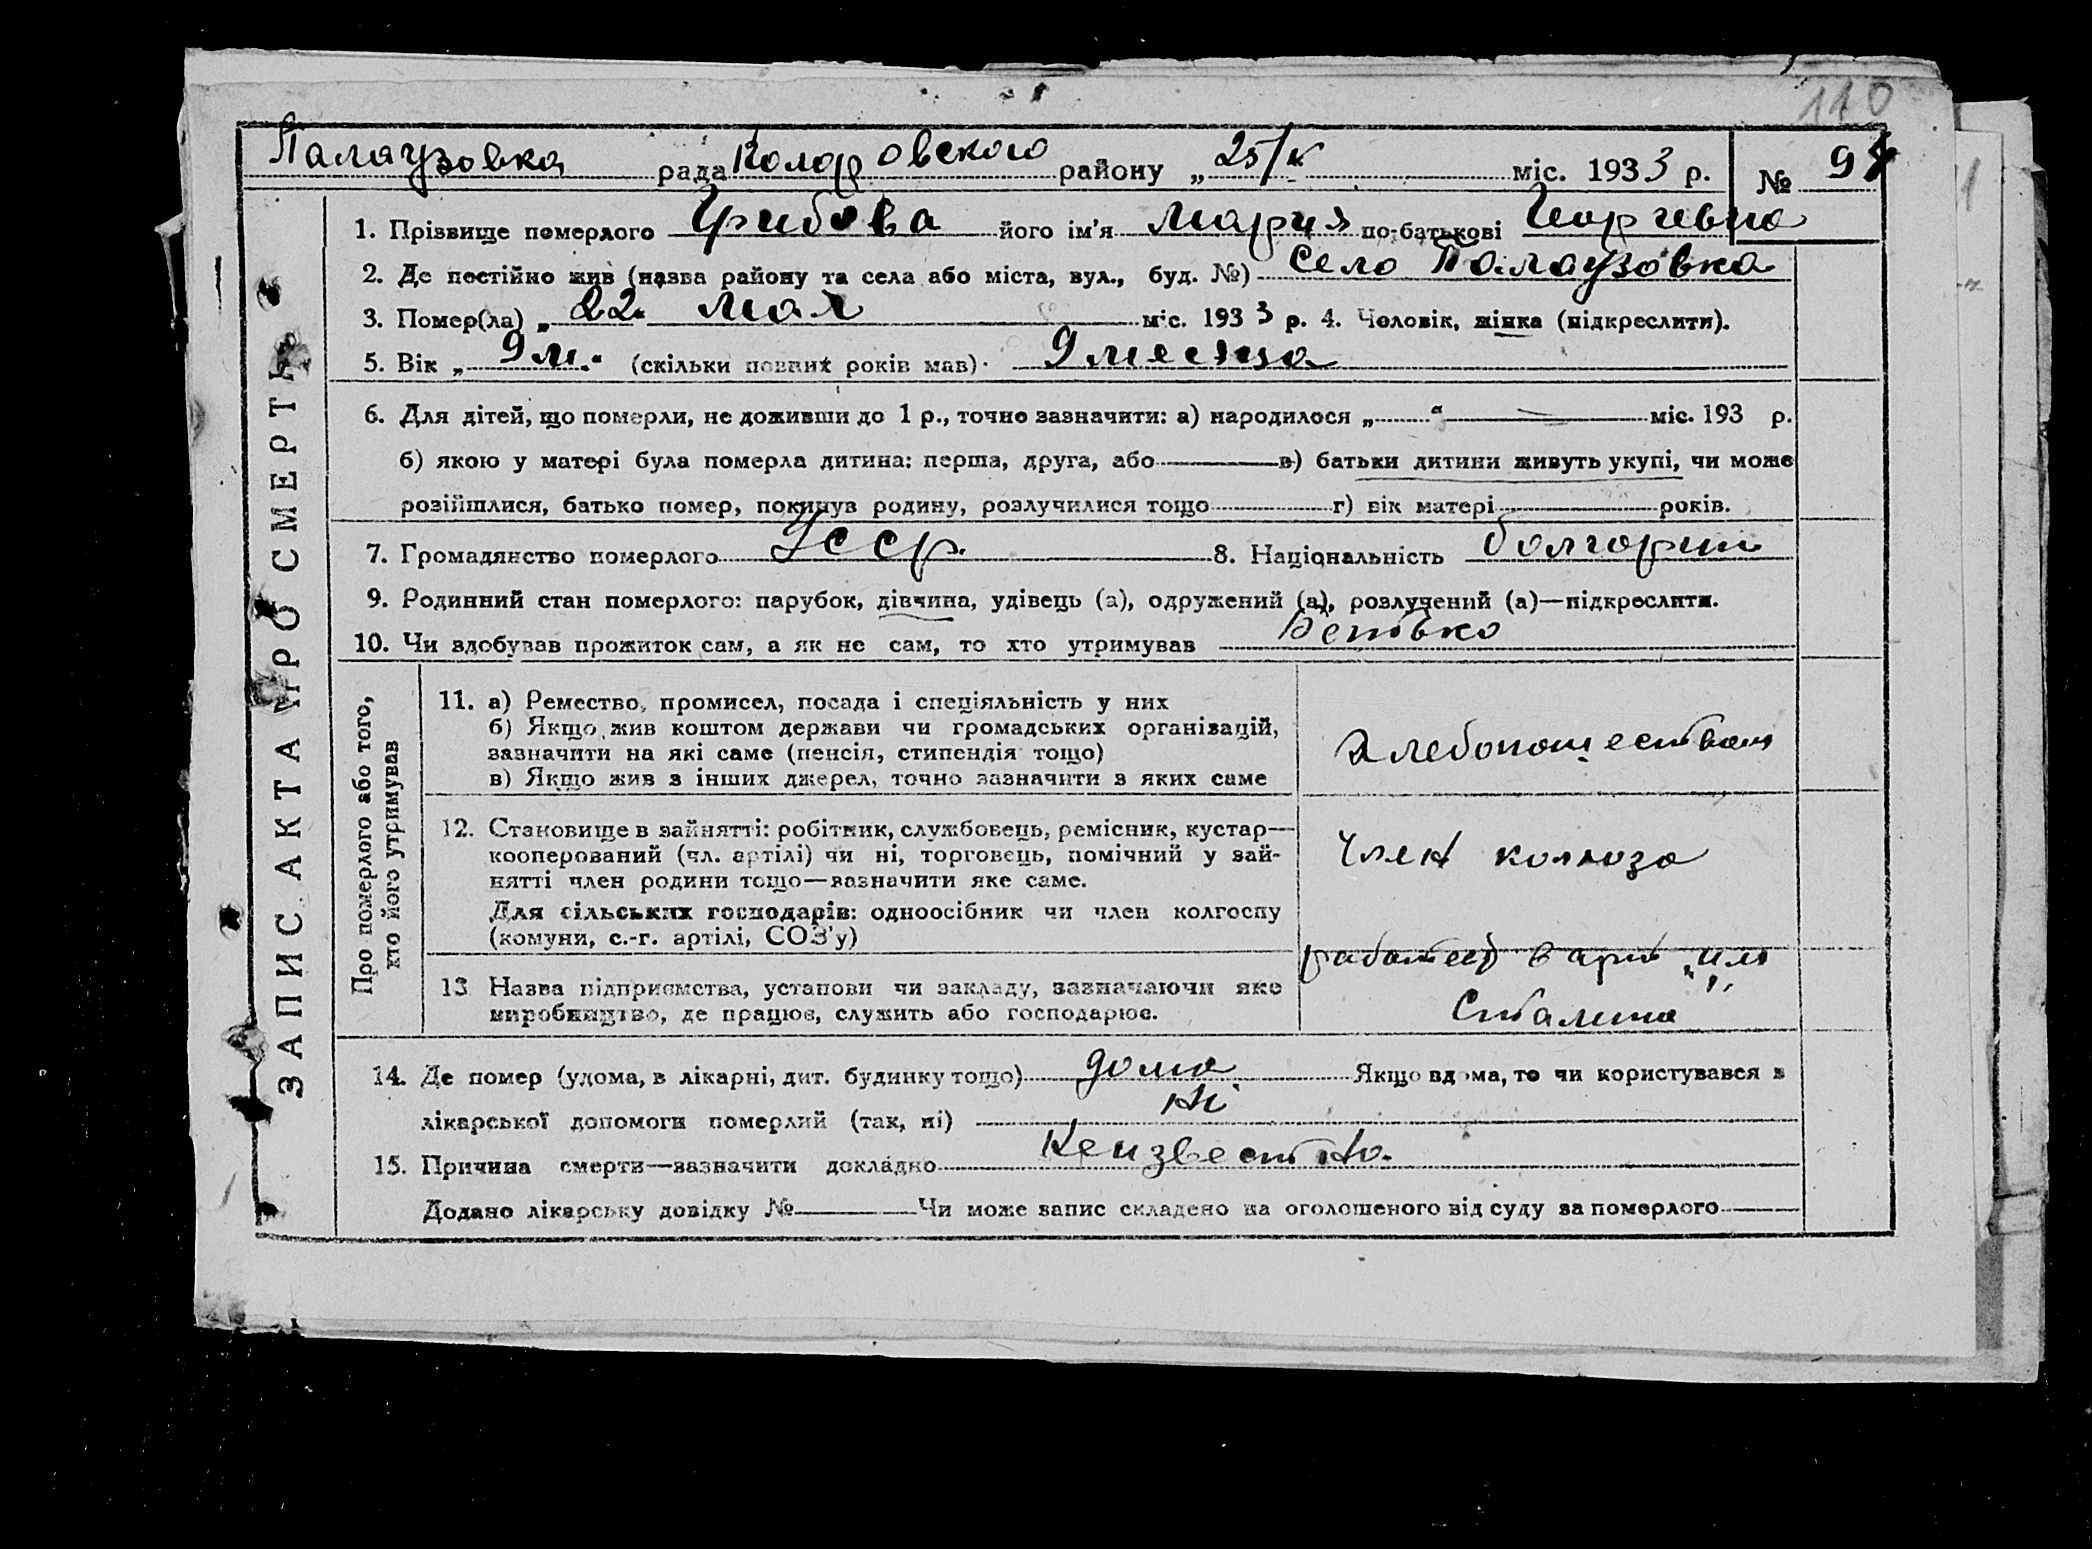 110
Палаузовка рада Коларовского району „ 25/V міс. 1933 р. № 94
ЗАПИС АКТА ПРО СМЕРТЬ
1. Прізвище померлого Грибова його ім'я Мария по-батькові
2. Де постійно жив (назва району та села або міста, вул., буд. №) Село Палаузовка
3. Помер(ла) „ 22 мая міс. 1933 р. 4. Чоловік, жінка (підкреслити).
5. Вік „ 9 м. " (скільки повних років мав) 9 месяца
6. Для дітей, що померли, не доживши до 1 р., точно зазначити: а) народилося „ " міс. 193 р.
б) якою у матері була померла дитина: перша, друга, або в) батьки дитини живуть укупі, чи може
розійшлися, батько помер, покинув родину, розлучилися тощо г) вік матері років.
7. Громадянство померлого Усср. 8. Національність болгарин
9. Родинний стан померлого: парубок, дівчина, удівець (а), одружений (а), розлучений (а)—підкреслити.
10. Чи здобував прожиток сам, а як не сам, то хто утримував
Про померлого або того,
хто його утримував
11. а) Ремество, промисел, посада і спеціяльність у них
б) Якщо жив коштом держави чи громадських організацій,
зазначити на які саме (пенсія, стипендія тощо)
в) Якщо жив з інших джерел, точно зазначити з яких саме
12. Становище в зайнятті: робітник, службовець, ремісник, кустар—
кооперований (чл. артілі) чи ні, торговець, помічний у зай-
нятті член родини тощо—зазначити яке саме.
Член колхоза
Для сільських господарів: одноосібник чи член колгоспу
(комуни, с.-г. артілі, СОЗ'у)
13 Назва підприємства, установи чи закладу, зазначаючи яке
виробництво, де працює, служить або господарює.
работает в арт „Им
Сталина"
14. Де помер (удома, в лікарні, дит. будинку тощо) дома Якщо вдома, то чи користувався з
лікарської допомоги померлий (так, ні) ні
15. Причина смерти—зазначити докладно Неизвестно.
Додано лікарську довідку № Чи може запис складено на оголошеного від суду за померлого